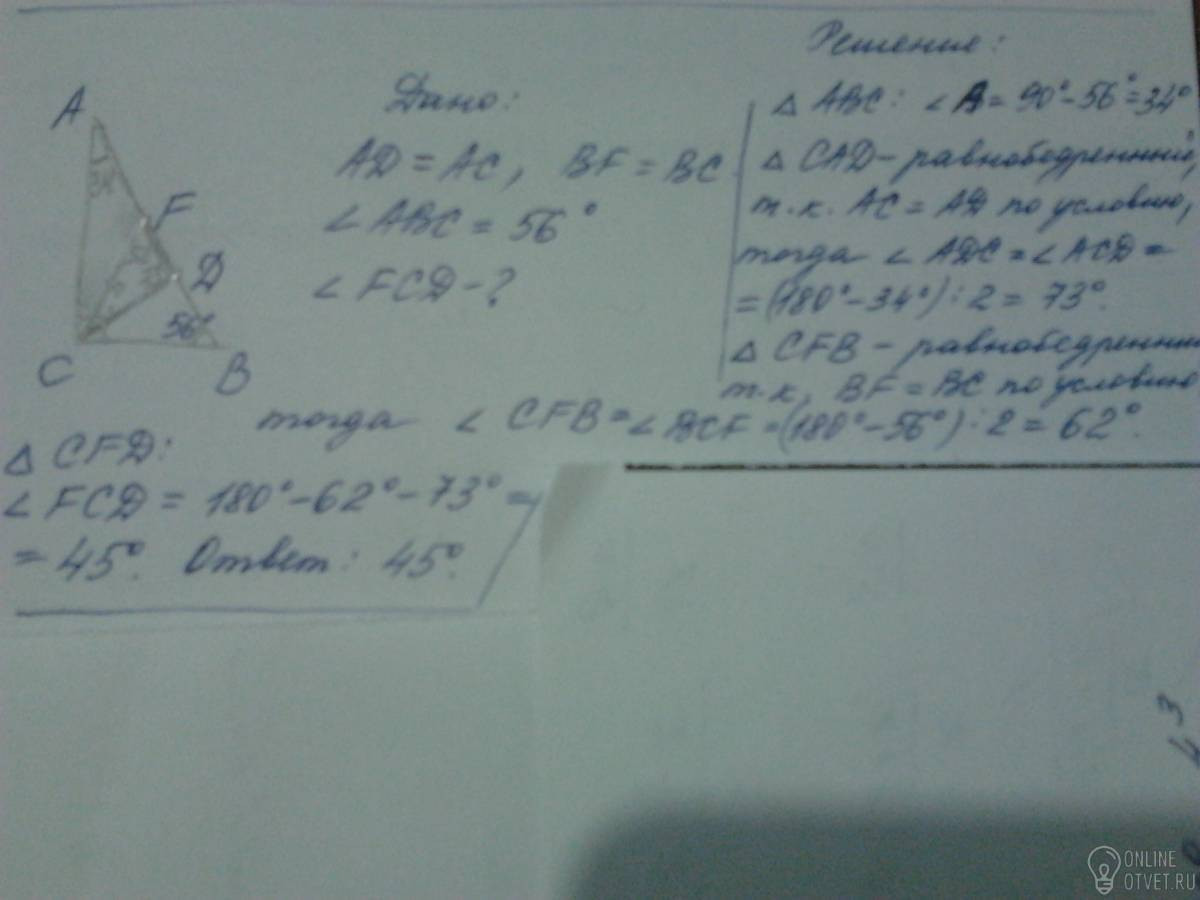 A
F
D
56°
C
B
Дано:
AD = AC, BF = BC
∠ABC = 56°
∠FCD - ?
Решение:
△ ABC: ∠A = 90° - 56° = 34°
△ CAD - равнобедренный,
т.к. AC = AD по условию,
тогда ∠ADC = ∠ACD =
= (180° - 34°) : 2 = 73°.
△ CFB - равнобедренный
т.к. BF = BC по условию
тогда ∠CFB = ∠BCF = (180° - 56°) : 2 = 62°.
△ CFD:
∠FCD = 180° - 62° - 73° =
= 45°. Ответ: 45°.
ONLINE
OTVET.RU